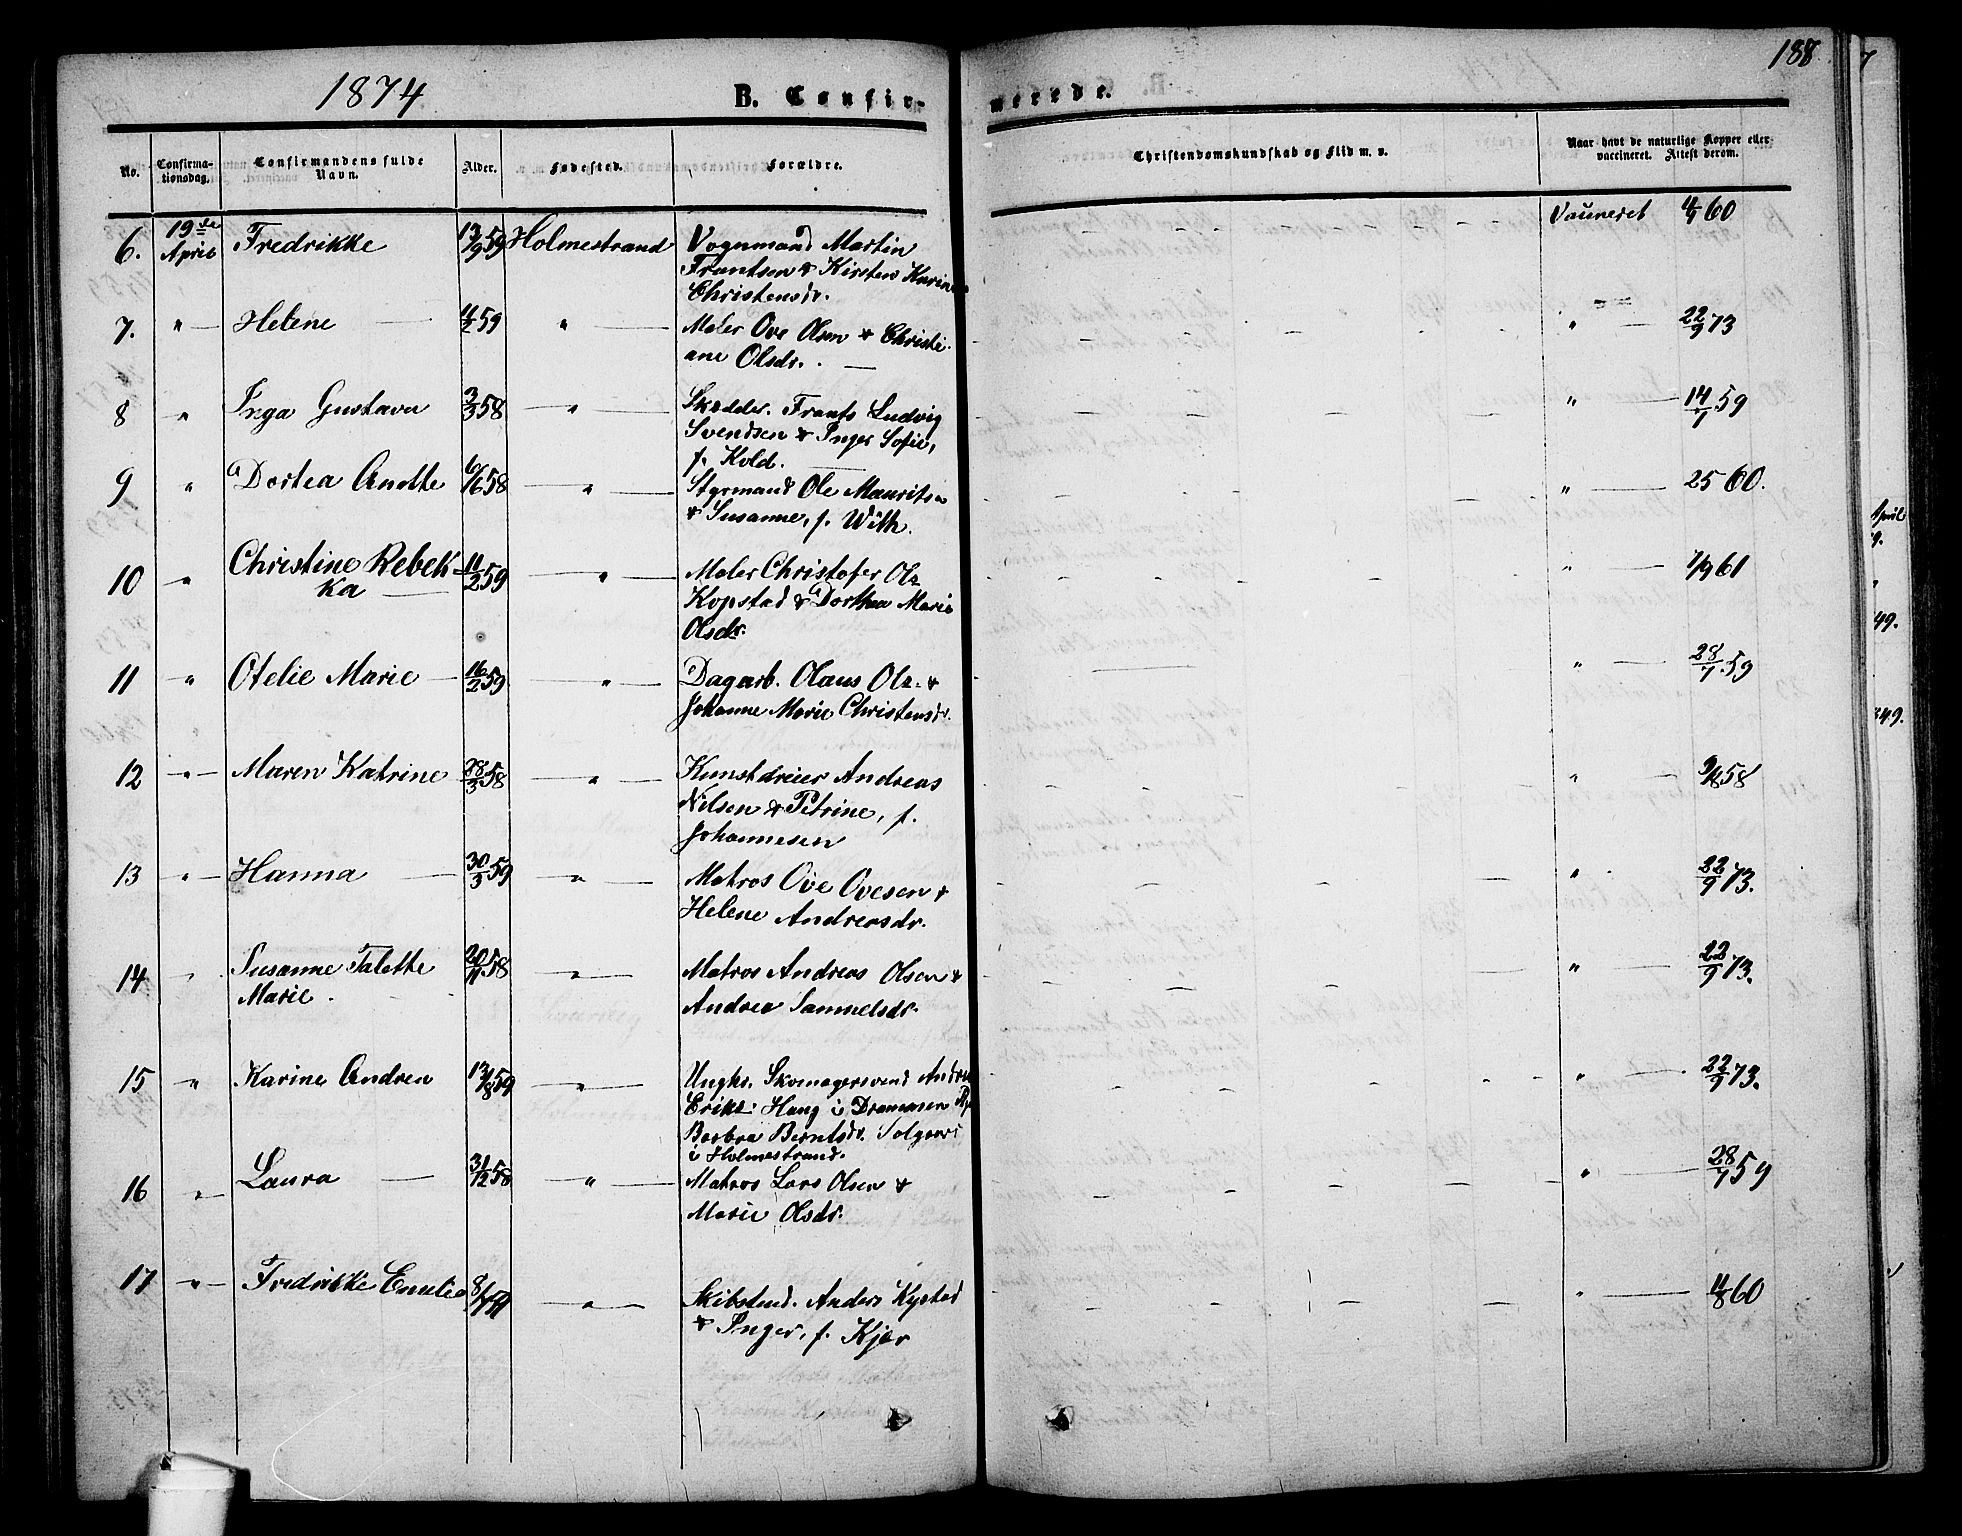 1874
B. Confir-
merede.
188
No.
Confirma-
tionsdag.
Confirmandens fulde
Navn.
Alder.
Fødested.
Forældre.
Christendomskundskab og Flid m. v.
Naar havt de naturlige Kopper eller
vaccineret. Attest derom.
6. 19de April Fredrikke 13/9 59 Holmestrand Vognmand Martin
Frantsen & Kirsten Karine
Christensdr.
Vacineret 4/9 60
7. " Helene 11/2 59 " Maler Ove Olsen & Christi-
ane Olsdr.
" 22/9 73
8 " Inga Gustava 3/3 58 " Skrædder. Frants Ludvig
Svendsen & Inger Sofie,
f. Kold.
" 14/7 59
9 " Dortea Anette 6/6 58 " Styrmand Ole Mauritsen
& Susanne, f. With.
" 25 60.
10 " Christine Rebek-
ka 11/2 59 " Maler Christofer Olz
Kopstad & Dorthea Marie
Olsdr.
" 1/9 61
11 " Otelie Marie 16/2 59 " Dagarb. Olaus Olz. &
Johanne Marie Christensdr.
" 28/7 59
12 " Maren Katrine 28/3 58 " Kunstdreier Andreas
Nilsen & Petrine, f.
Johannesen
" 9/8 58
13 " Hanna 30/3 59 " Matros Ove Ovesen &
Helene Andreasdr.
" 22/9 73.
14 " Susanne Talette
Marie. 20/11 58 " Matros Andreas Olsen &
Andrea Samuelsdr.
" 22/9 73.
15 " Karine Andrea 13/8 59 " Ungk. Skomagersvend
Eriks: Haug i Drammen
Barbra Berntsdr. Solgaard
i Holmestrand.
" 22/9 73.
16 " Laura 31/12 58 " Matros Lars Olsen &
Marie Olsdr.
" 28/7 59
17 " Fredrikke Emilie 8/7 59 " Skibstmd. Anders Kystad
& Inger, f. Kjær
" 11/8 60
April
49.
349.